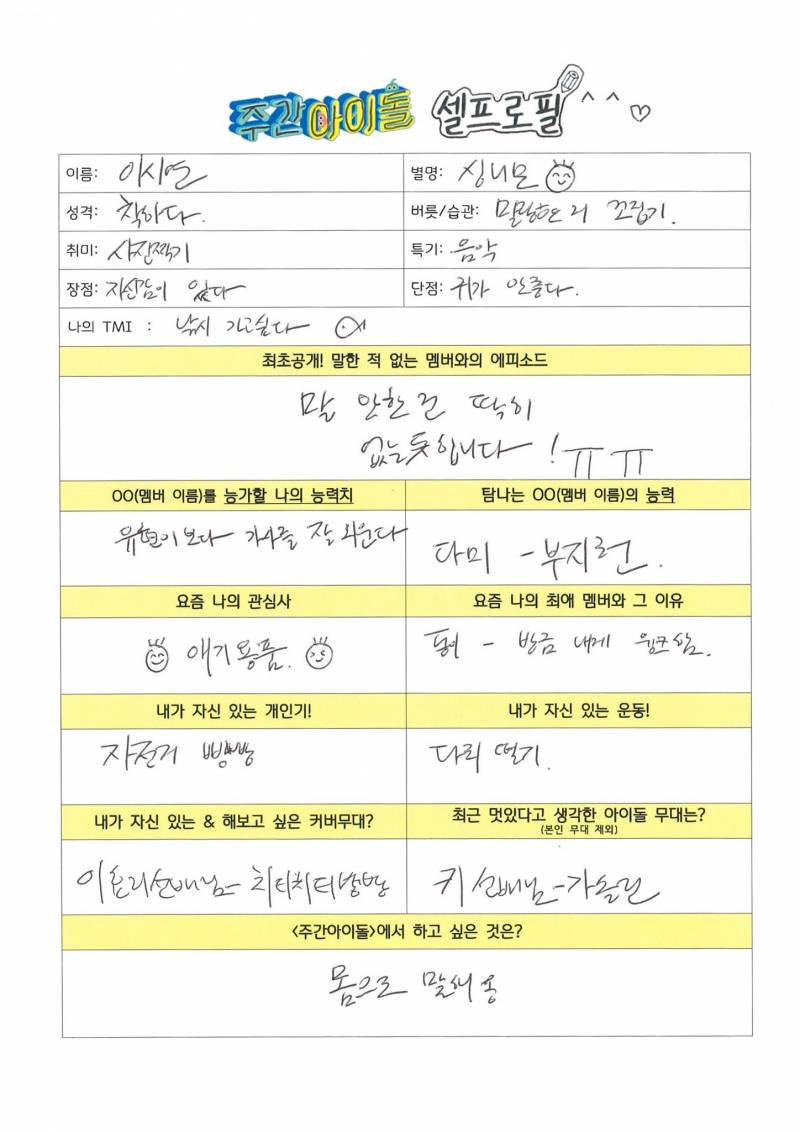 주간아이돌 셀프로필 ^^♡
이름: 이시연 별명: 싱니모
성격: 착하다. 버릇/습관: 말랑한 거 꼬집기.
취미: 사진찍기 특기: 음악
장점: 자신감이 있다 단점: 귀가 안좋다.
나의 TMI : 낚시 가고싶다
최초공개! 말한 적 없는 멤버와의 에피소드
말 안한 건 딱히
없는 듯 합니다! ㅠㅠ
OO(멤버 이름)를 능가할 나의 능력치 탐나는 OO(멤버 이름)의 능력
유현이보다 가사를 잘 외운다 다미 - 부지런.
요즘 나의 관심사 요즘 나의 최애 멤버와 그 이유
애기용품. - 방금 내게 윙크함.
내가 자신 있는 개인기! 내가 자신 있는 운동!
자전거 빵빵 다리 떨기.
내가 자신 있는 & 해보고 싶은 커버무대? 최근 멋있다고 생각한 아이돌 무대는?
(본인 무대 제외)
이효리선배님 - 치티치티뱅뱅 키 선배님 - 가솔린
<주간아이돌>에서 하고 싶은 것은?
몸으로 말해용